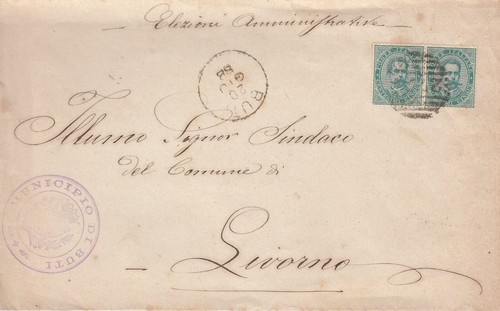 Elezioni Amministrative
BUTI
20
GIU
88
Illumo Signor Sindaco
del Comune di
Livorno
MUNICIPIO DI BUTI